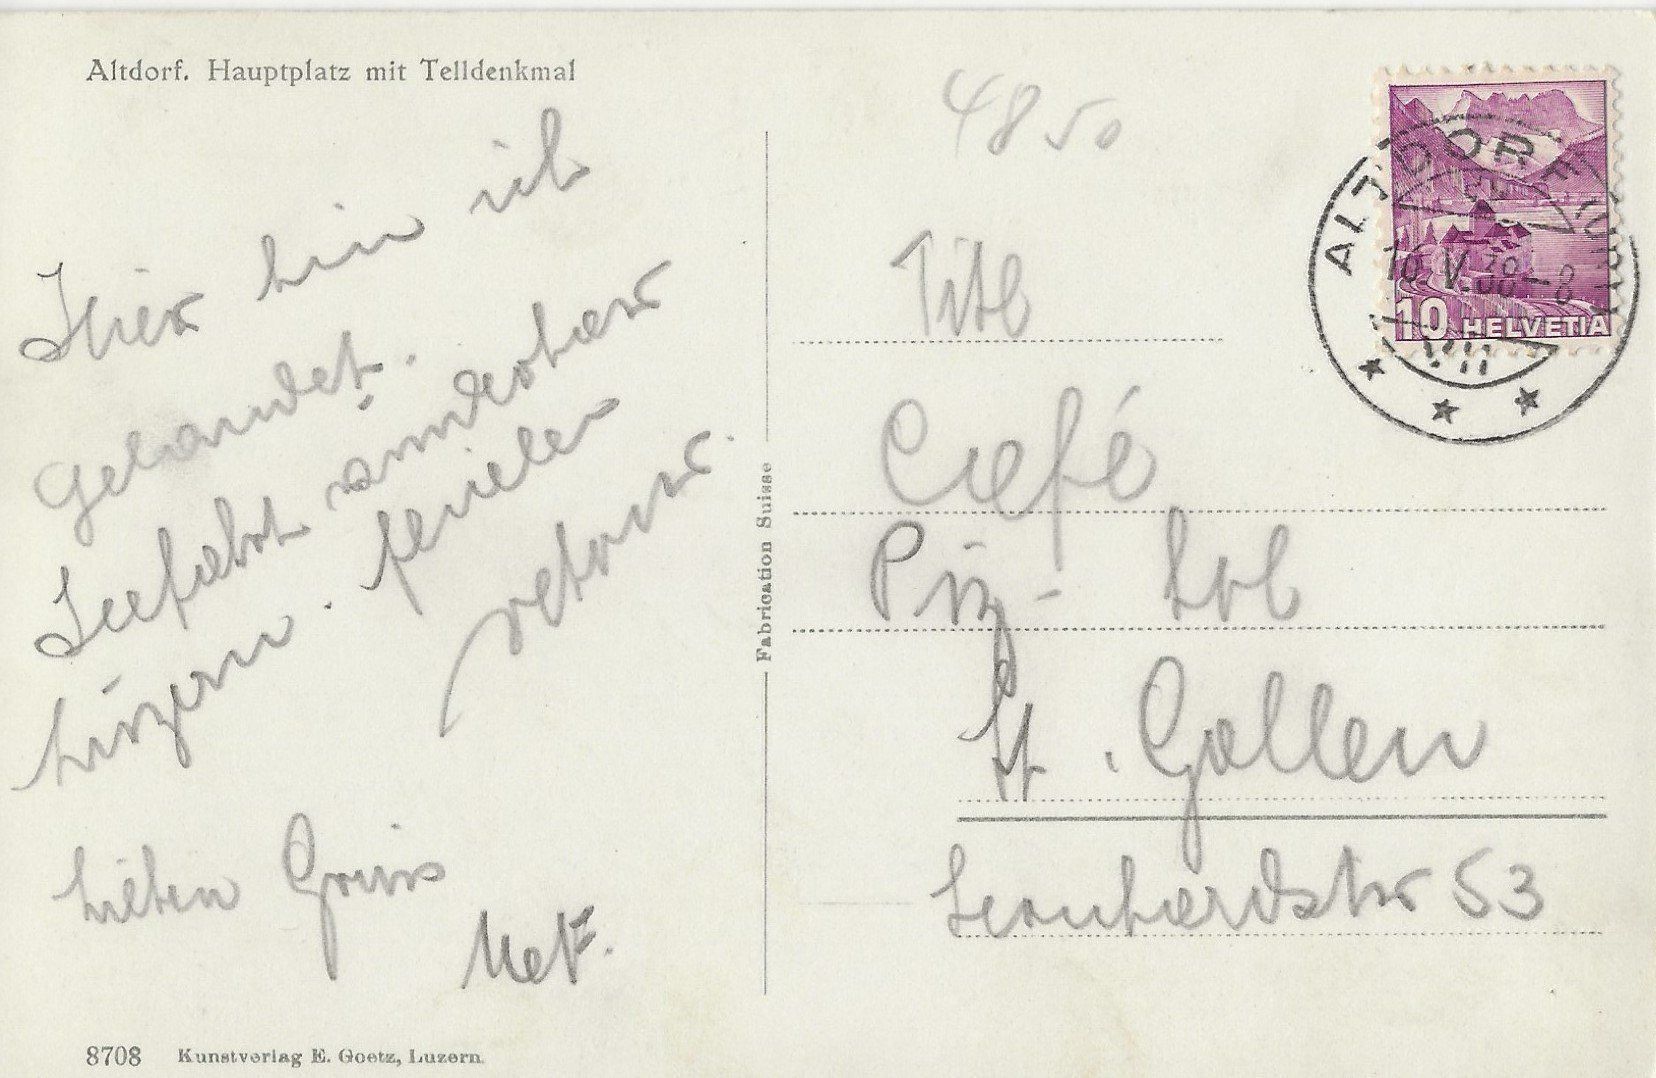 Altdorf. Hauptplatz mit Telldenkmal
Hier bin ich
gelandet.
Seefahrt wunderbar
Luzern. 
retour.
Lieben Gruss
4850
Titl
Café
Piz-Sol
St. Gallen
Leonhardstr 53
Fabrication Suisse
ALTDORF (URI)
10.V.38-8
10 HELVETIA
8708 Kunstverlag E. Goetz, Luzern.